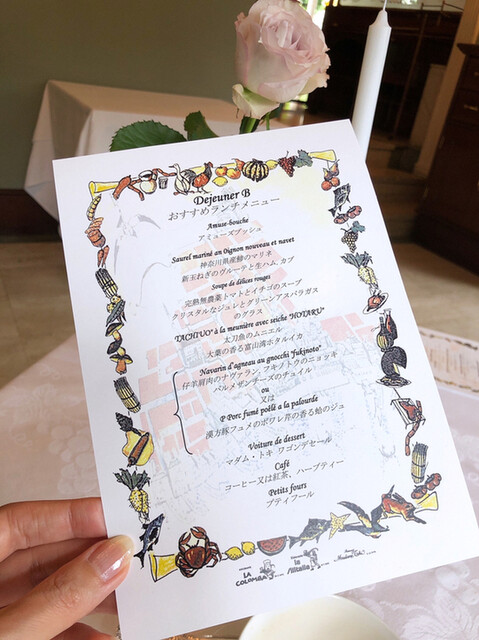 Dejeuner B
おすすめランチメニュー
Amuse-bouche
アミューズブッシュ
Saurel mariné an oignon nouveau et navet
神奈川県産鯵のマリネ
新玉ねぎのヴルーテと生ハム,カブ
Soupe de délices rouges
完熟無農薬トマトとイチゴのスープ
クリスタルなジュレとグリーンアスパラガス
のグラス
"TACHIUO" à la meunière avec seiche "HOTARU"
太刀魚のムニエル
大葉の香る富山湾ホタルイカ
Navarin d'agneau au gnocchi "fukinoto"
仔羊肩肉のナヴァラン, フキノトウのニョッキ
パルメザンチーズのチュイル
ou
又は
P Porc fumé poêlé a la palourde
漢方豚フュメのポワレ芹の香る蛤のジュ
Voiture de dessert
マダム・トキ ワゴンデセール
Café
コーヒー又は紅茶、ハーブティー
Petits fours
プティフール
LA COLOMBA
la Stilulla